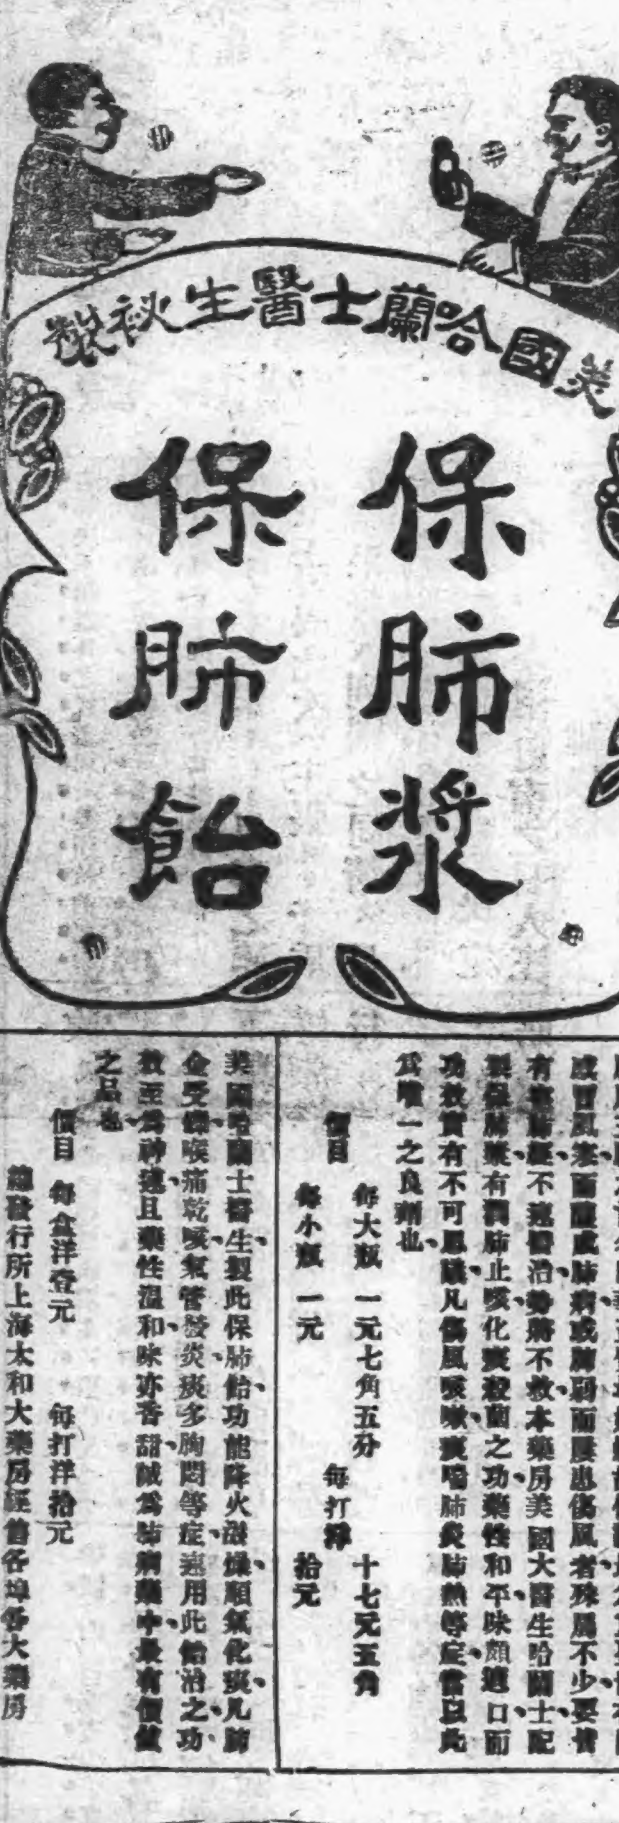 美國哈蘭士醫生秘製
保肺漿
保肺飴
感冒風寒而釀成肺病或肺弱而屢患傷風者殊屬不少要皆
有礙肺經不速醫治勢將不救本藥房美國大醫生哈蘭士配
製保肺漿有潤肺止咳化痰殺菌之功藥性和平味頗適口而
功效實有不可思議凡傷風咳嗽痰喘肺炎肺熱等症當以此
為唯一之良劑也
價目
每大瓶 一元七角五分 十七元五角
每打洋
每小瓶 一元 拾元
美國哈蘭士醫生製此保肺飴功能降火潤燥順氣化痰凡肺
金受爍喉痛乾咳氣管發炎痰多胸悶等症速用此飴治之功
效至為神速且藥性溫和味亦香甜誠為肺病藥中最有價值
之品也
價目 每盒洋壹元 每打洋拾元
總發行所上海太和大藥房經售各埠各大藥房